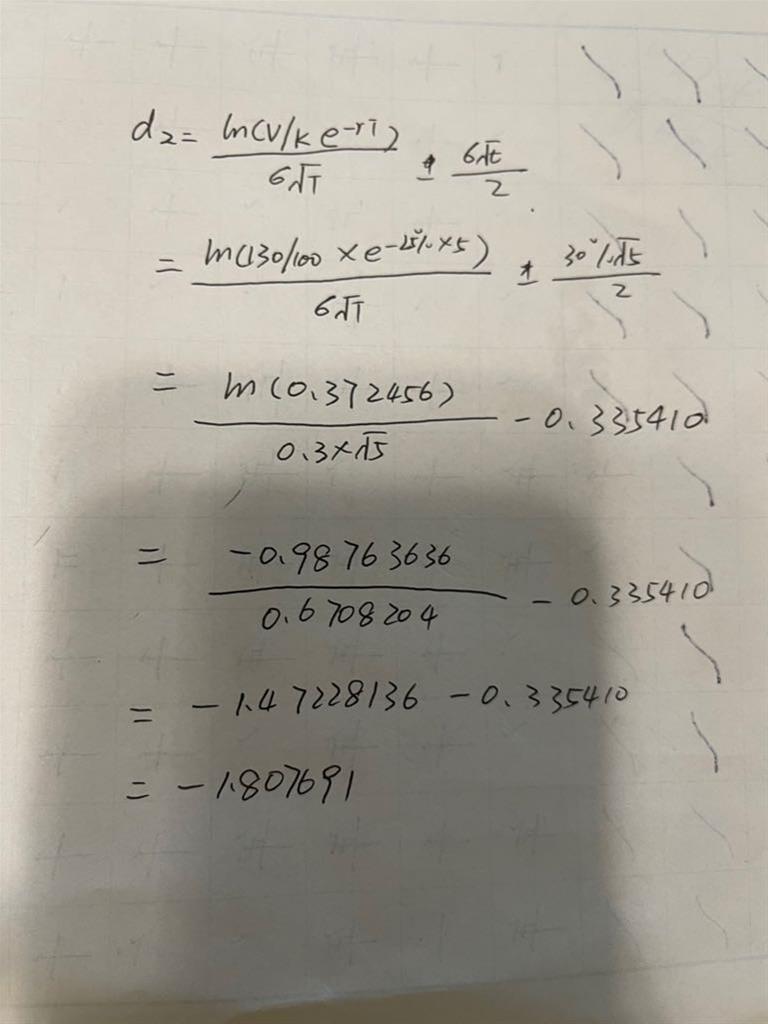 d₂ = ln(V/K e^-rT) / 6√T ± 6√t / 2
= ln(130/100 × e^-25%×5) / 6√T ± 30%√5 / 2
= ln(0.372456) / 0.3×√5 - 0.335410
= -0.98763636 / 0.6708204 - 0.335410
= -1.47228136 - 0.335410
= -1.807691